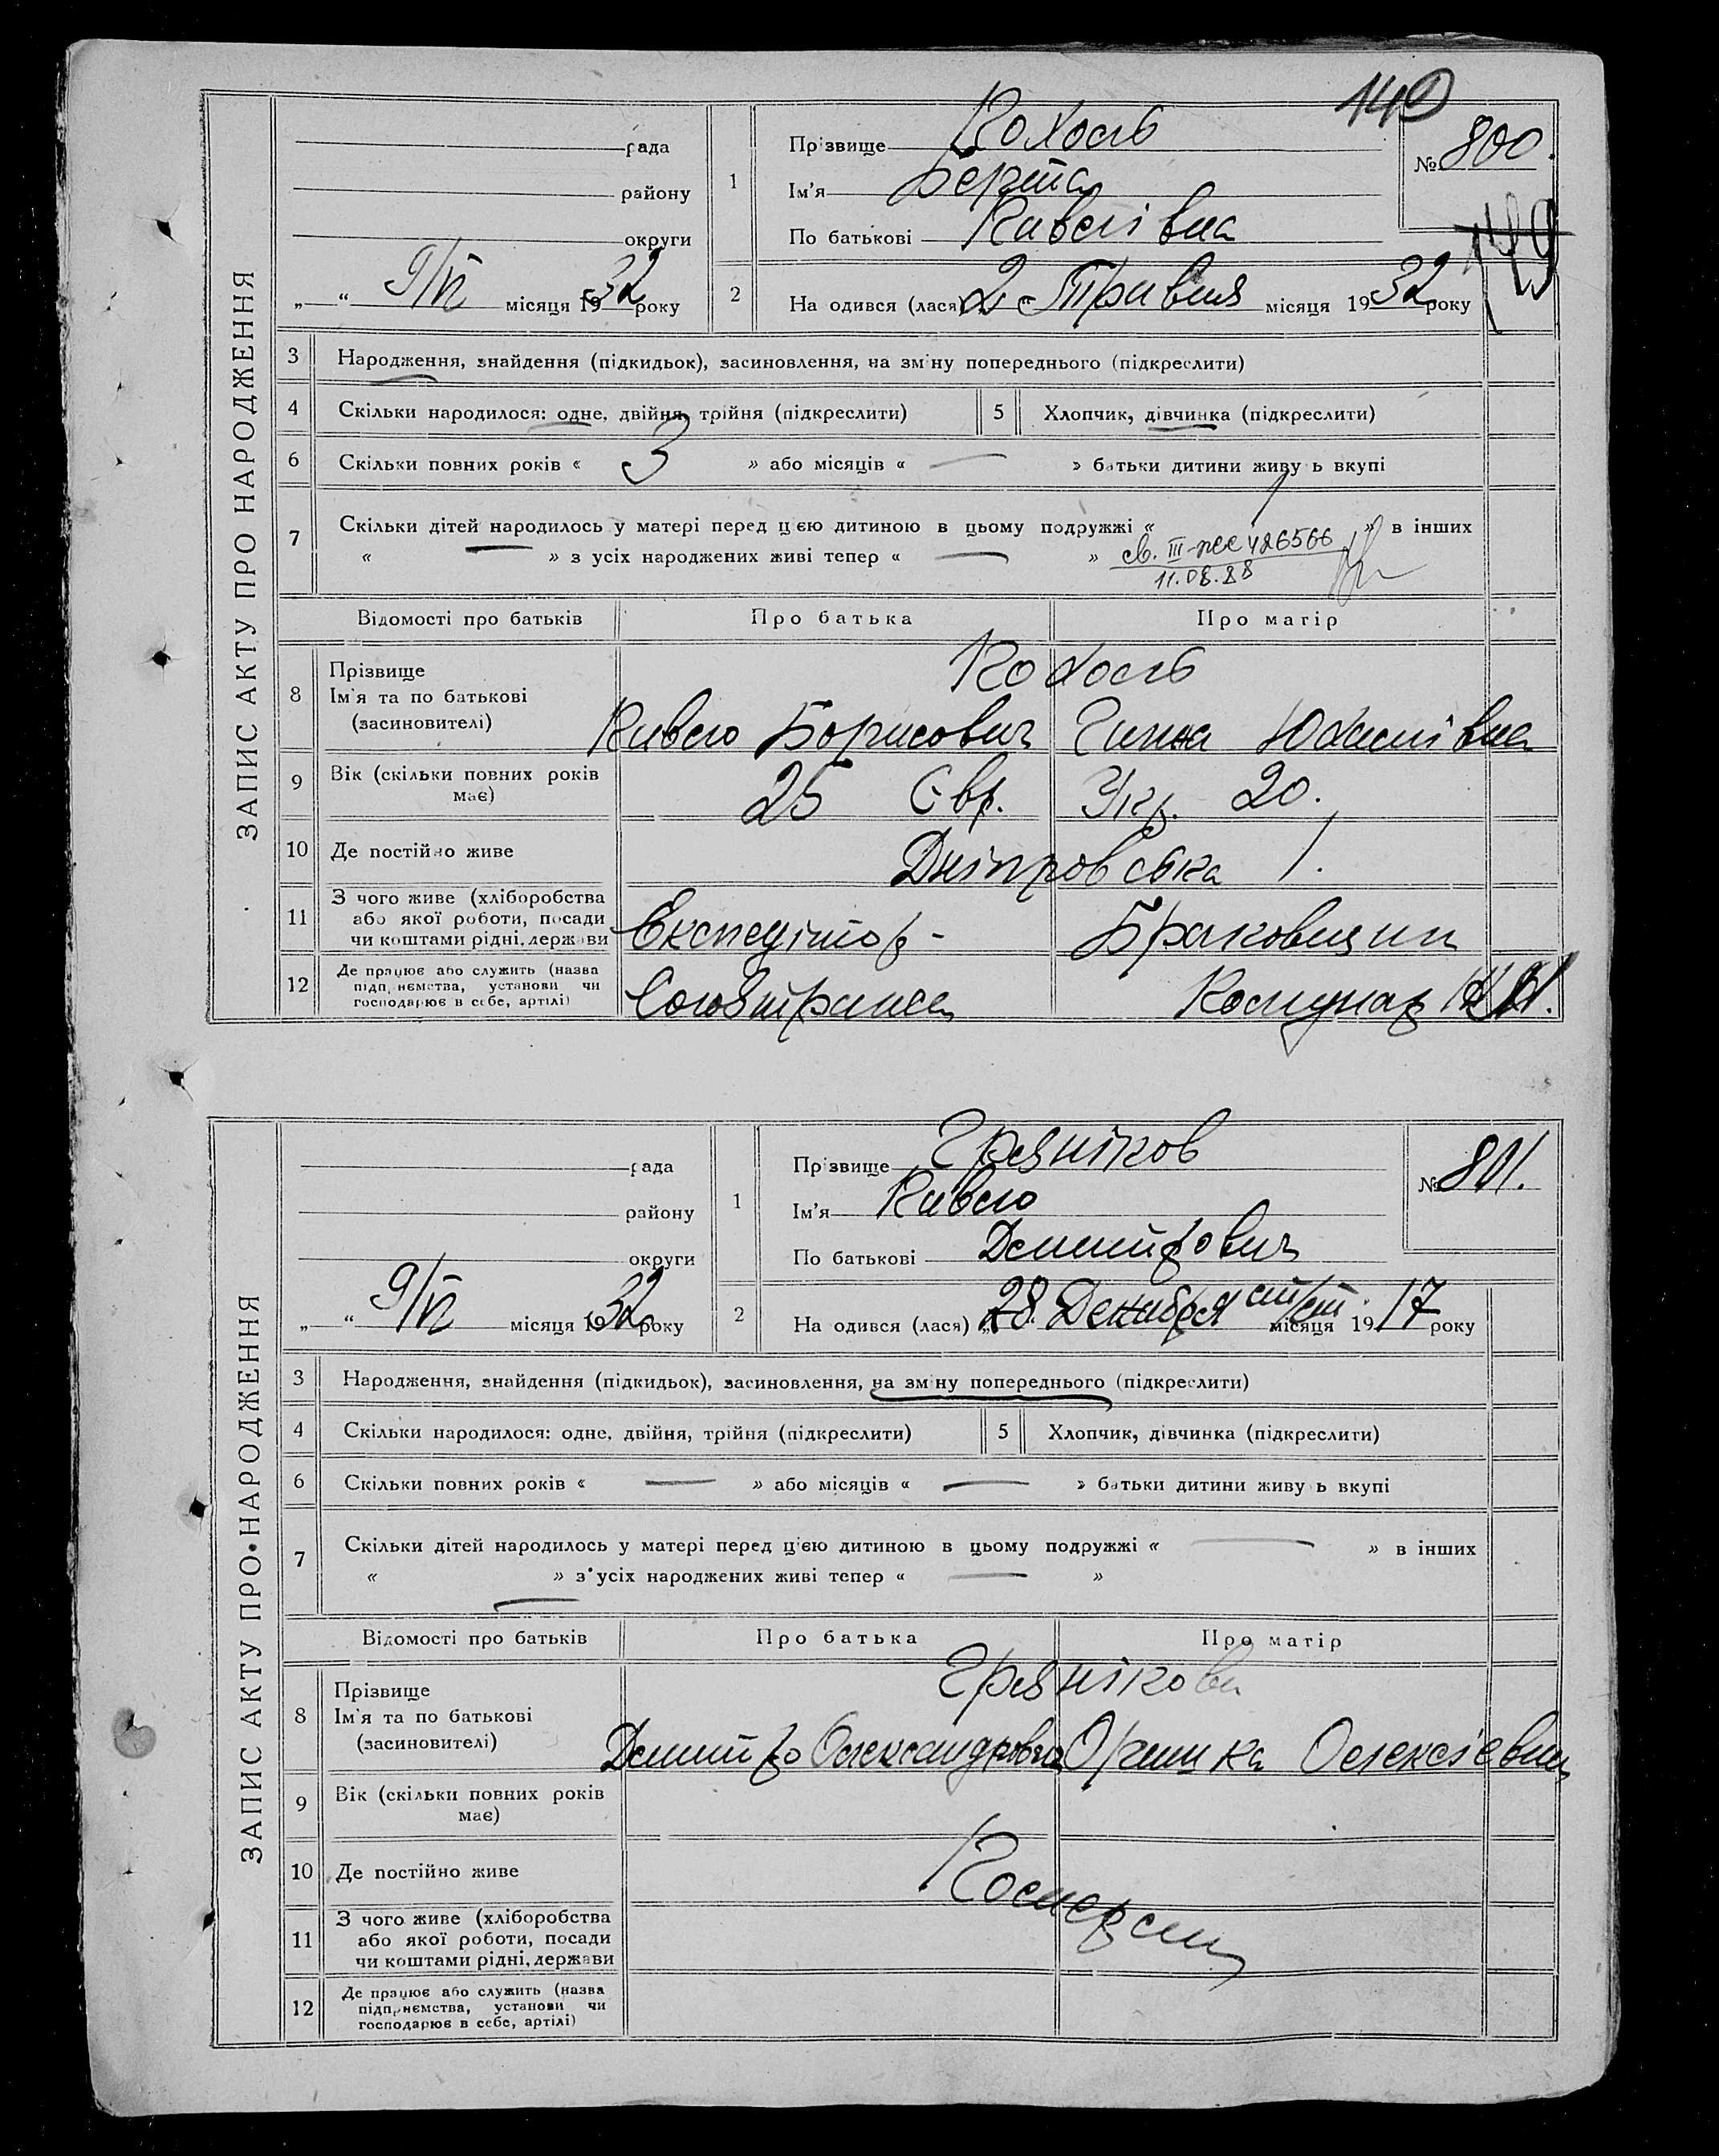 149
ЗАПИС АКТУ ПРО НАРОДЖЕННЯ
рада
району
округи
„ “ 9/VI місяця 1932 року
1
Прізвище Кохось
Ім'я Берта
По батькові
№ 800.
149
2
На одився (лася) 2 Травня місяця 1932 року
3 Народження, знайдення (підкидьок), засиновлення, на зміну попереднього (підкреслити)
4 Скільки народилося: одне, двійня, трійня (підкреслити) 5 Хлопчик, дівчинка (підкреслити)
6 Скільки повних років « 3 » або місяців « — » батьки дитини живу ь вкупі
7 Скільки дітей народилось у матері перед цією дитиною в цьому подружжі « » в інших
« — » з усіх народжених живі тепер « — »
св. III-ЖС 426566
11.08.88
Відомості про батьків Про батька Про матір
8 Прізвище
Ім'я та по батькові
(засиновителі)
Кохось
Борисович
9 Вік (скільки повних років
має)
25 Євр. Укр. 20.
10 Де постійно живе Дніпровська 1.
11 З чого живе (хліборобства
або якої роботи, посади
чи коштами рідні, держави
Експедітор - Браковщиц
12 Де працює або служить (назва
підприємства, установи чи
господарює в себе, артілі)
Союзтранс Комунар
ЗАПИС АКТУ ПРО НАРОДЖЕННЯ
рада
району
округи
„ “ 9/VI місяця 1932 року
1
Прізвище Грязніков
Ім'я
По батькові Дмитрович
№ 801.
2
На одився (лася) „ 28. Декабря ст/ст. місяця 1917 року
3 Народження, знайдення (підкидьок), засиновлення, на зміну попереднього (підкреслити)
4 Скільки народилося: одне, двійня, трійня (підкреслити) 5 Хлопчик, дівчинка (підкреслити)
6 Скільки повних років « — » або місяців « — » батьки дитини живу ь вкупі
7 Скільки дітей народилось у матері перед цією дитиною в цьому подружжі « — » в інших
« — » з усіх народжених живі тепер « — »
Відомості про батьків Про батька Про матір
8 Прізвище
Ім'я та по батькові
(засиновителі)
Грязнікови
Дмитро Олександрович Оришка Олексіевна
9 Вік (скільки повних років
має)
10 Де постійно живе
11 З чого живе (хліборобства
або якої роботи, посади
чи коштами рідні, держави
12 Де працює або служить (назва
підприємства, установи чи
господарює в себе, артілі)